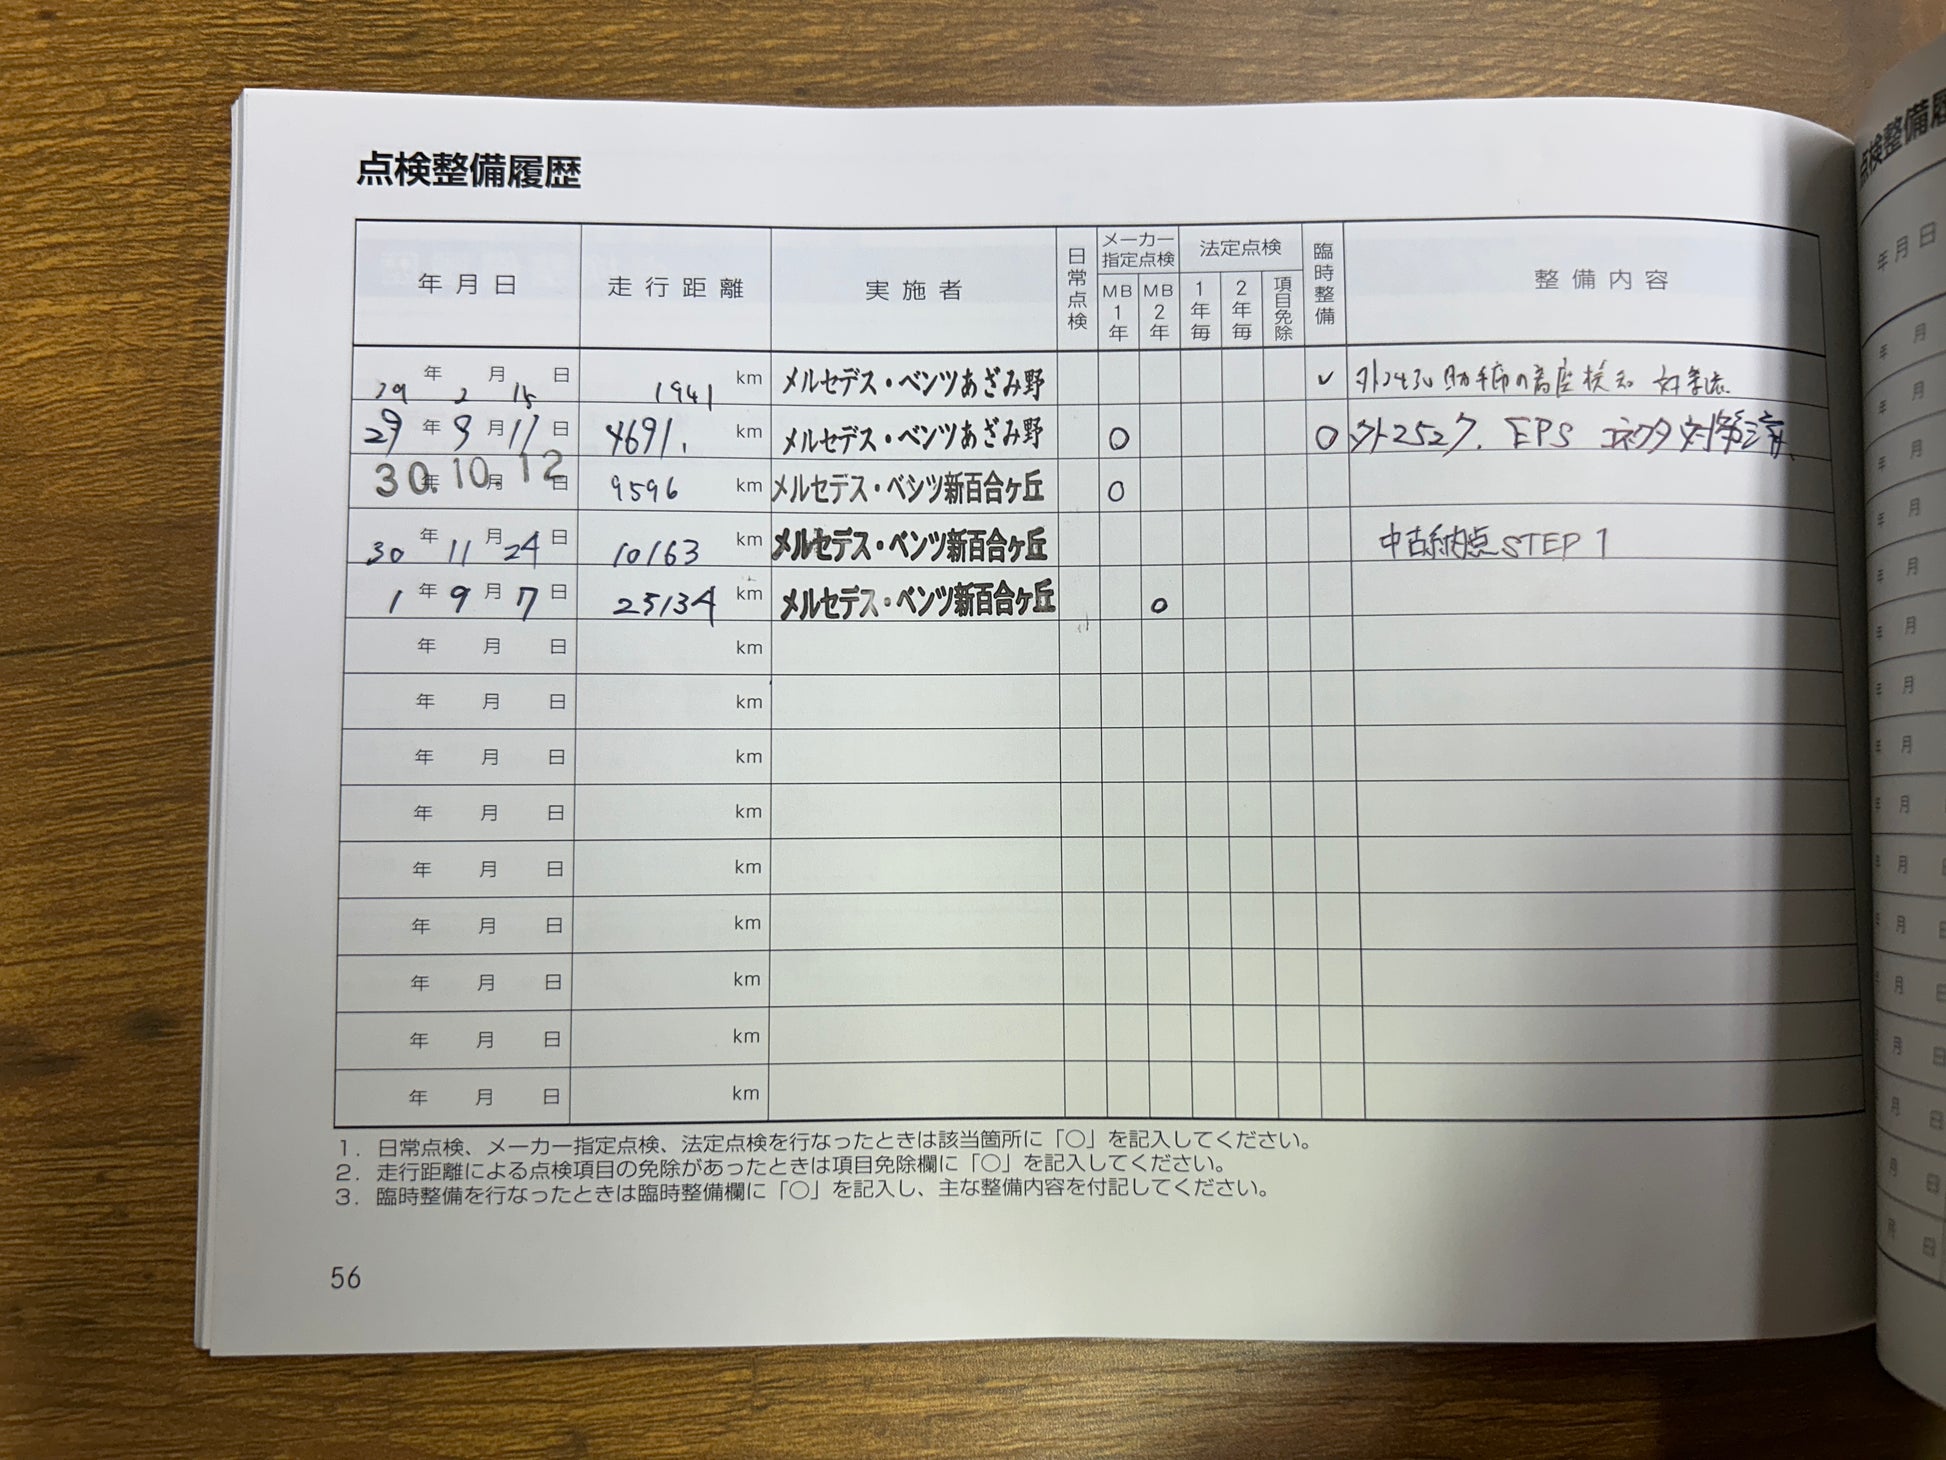 点検整備履歴
年月日 走行距離 実施者 日常点検 メーカー指定点検 MB1年 MB2年 法定点検 1年毎 2年毎 項目免除 臨時整備 整備内容
29年2月15日 1941km メルセデス・ベンツあざみ野 ✓ 助手席の着座検知 対策済
29年9月11日 4691.km メルセデス・ベンツあざみ野 ○ ○ 外2527. EPS コネクタ対策済
30.年10.月12日 9596km メルセデス・ベンツ新百合ヶ丘 ○
30年11月24日 10163km メルセデス・ベンツ新百合ヶ丘 中古納点STEP1
1年9月7日 25134km メルセデス・ベンツ新百合ヶ丘 ○
年月日 km
年月日 km
年月日 km
年月日 km
年月日 km
年月日 km
年月日 km
年月日 km
年月日 km
1. 日常点検、メーカー指定点検、法定点検を行なったときは該当箇所に「○」を記入してください。
2. 走行距離による点検項目の免除があったときは項目免除欄に「○」を記入してください。
3. 臨時整備を行なったときは臨時整備欄に「○」を記入し、主な整備内容を付記してください。
56
点検整備履
年月日
年月
年月
年月
年月
年月
年月
年月
年月
年月
年月日
年月日
月日
月日
月日
月日